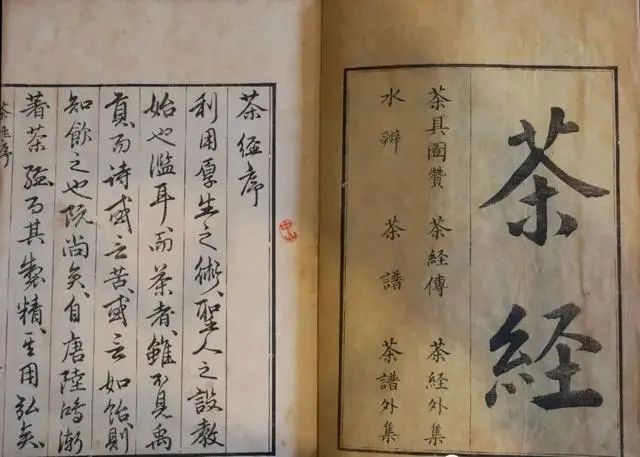 茶経
茶具圖賛 茶経傳 茶経外集
水辨 茶譜 茶譜外集
茶経序
利用厚生之術、聖人之設教
始也濫耳、而茶者、雖不見禹
貢、而詩或言苦、或言如飴、則
知飲之也既尚矣、自唐陸鴻漸
著茶経、而其製精、其用弘矣、
茶経序